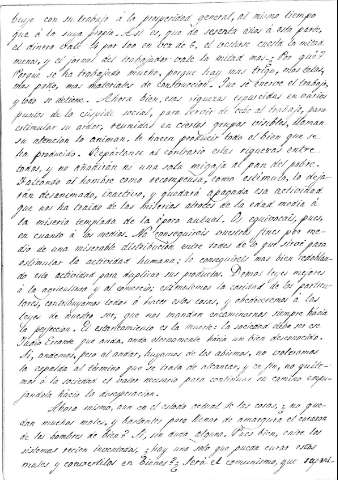 buye con su trabajo á la prosperidad general, al mismo tiempo
que á la suya propia. Así es, que de sesenta años a esta parte,
el dinero vale 4 por 100 en vez de 6, el vestido cuesta la mitad
menos, y el jornal del trabajador vale la mitad mas. ¿Por qué?
Porque se ha trabajado mucho, porque hay mas trigo, mas telas,
mas paño, mas materiales de construccion. Pues se enerve el trabajo,
y todo se detiene. Ahora bien, esas riquezas esparcidas en varios
puntos de la cúspide social, para servir de cebo al trabajo, para
estimular su ardor, reunidas en ciertos parages visibles, llaman
su atencion, lo animan, le hacen producir todo el bien que se
ha producido. Repartanse al contrario estas riquezas entre
todos, y no añadirán ni una sola migaja al pan del pobre.
Faltando al hombre como recompensa, como estímulo, lo deja-
rán desanimado, inactivo, y quedará apagada esa actividad
que nos ha traido de las historias atroces de la edad media á
la miseria templada de la época actual. Os equivocais, pues,
en cuanto á los medios. No conseguireis vuestros fines por me-
dio de una miserable distribucion entre todos de lo que sirve para
estimular la actividad humana; lo conseguireis mas bien
esta actividad para duplicar sus productos. Demos leyes mejores
á la agricultura y al comercio; estimulemos la caridad de los particu-
lares; contribuyamos todos á hacer estas cosas, y obedezcamos á las
leyes de nuestro ser, que nos mandan encaminarnos siempre hacia
la perfeccion. El estancamiento es la muerte: la sociedad debe ser un
Judio Errante que anda, anda eternamente hácia un bien desconocido.
Sí, andemos, pero al andar, huyamos de los abismos, no volvamos
la espalda al término que se trata de alcanzar, y en fin, no quite-
mos á la sociedad el valor necesario para continuar su camino empu-
jándola hácia la desesperacion.
Ahora mismo, aun en el estado actual de las cosas, ¿no que-
dan muchos males, y bastantes para llenar de amargura el corazon
de los hombres de bien? Sí, sin duda alguna. Pues bien, entre los
sistemas recien inventados, ¿hay uno solo que puedan curar estos
males y convertirlos en bienes? ¿Será el comunismo, que supri-